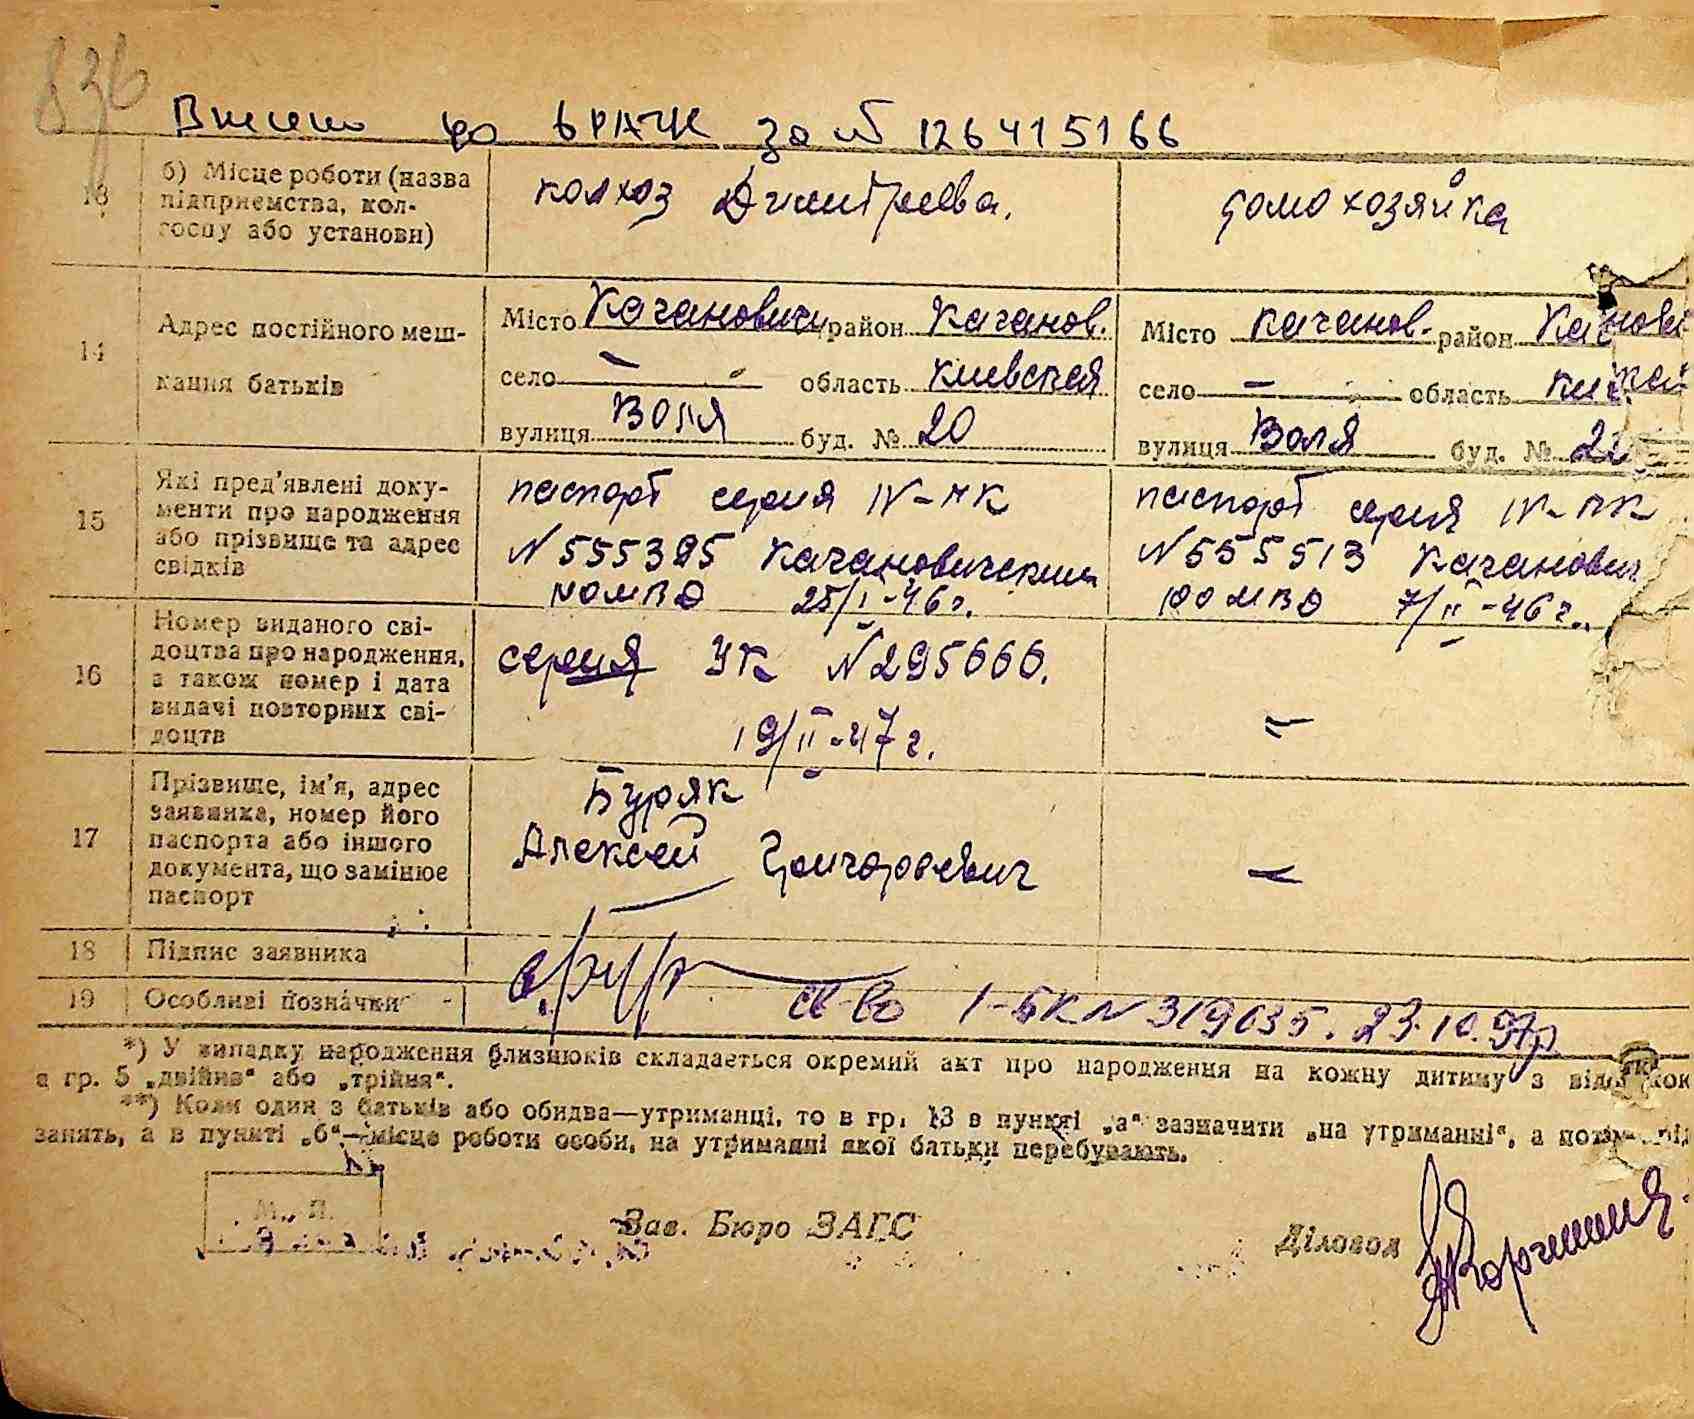 836
Внесено до ВРАЦС за № 126415166
13 б) Місце роботи (назва підприємства, колгоспу або установи) колхоз Димитрова. домохозяйка
14 Адрес постійного мешкання батьків
Місто Кагановичи район Каганов. Місто Каганов. район
село — область Киевская село — область
вулиця Воля буд. № 20 вулиця Воля буд. №
15 Які пред'явлені документи про народження або прізвище та адрес свідків
паспорт серия IV-МК паспорт серия IV-МК
N 555395 Кагановичским N 555513 Каганович
РОМВД 25/I-46г. РОМВД 7/II-46г.
16 Номер виданого свідоцтва про народження, а також номер і дата видачі повторних свідоцтв
серия УК N 295666. —
19/II-47г.
17 Прізвище, ім'я, адрес заявника, номер його паспорта або іншого документа, що замінює паспорт
Буряк
Алексей Григорьевич —
18 Підпис заявника
19 Особливі позначки св-во 1-БК N 319035. 23.10.97р
*) У випадку народження близнюків складається окремий акт про народження на кожну дитину з
в гр. 5 „двійня“ або „трійня“.
**) Коли один з батьків або обидва—утриманці, то в гр. 13 в пункті „а“ зазначити „на утриманні“, а потім
занять, а в пункті „б“—місце роботи особи, на утриманні якої батьки перебувають.
М. П.
Зав. Бюро ЗАГС Діловод